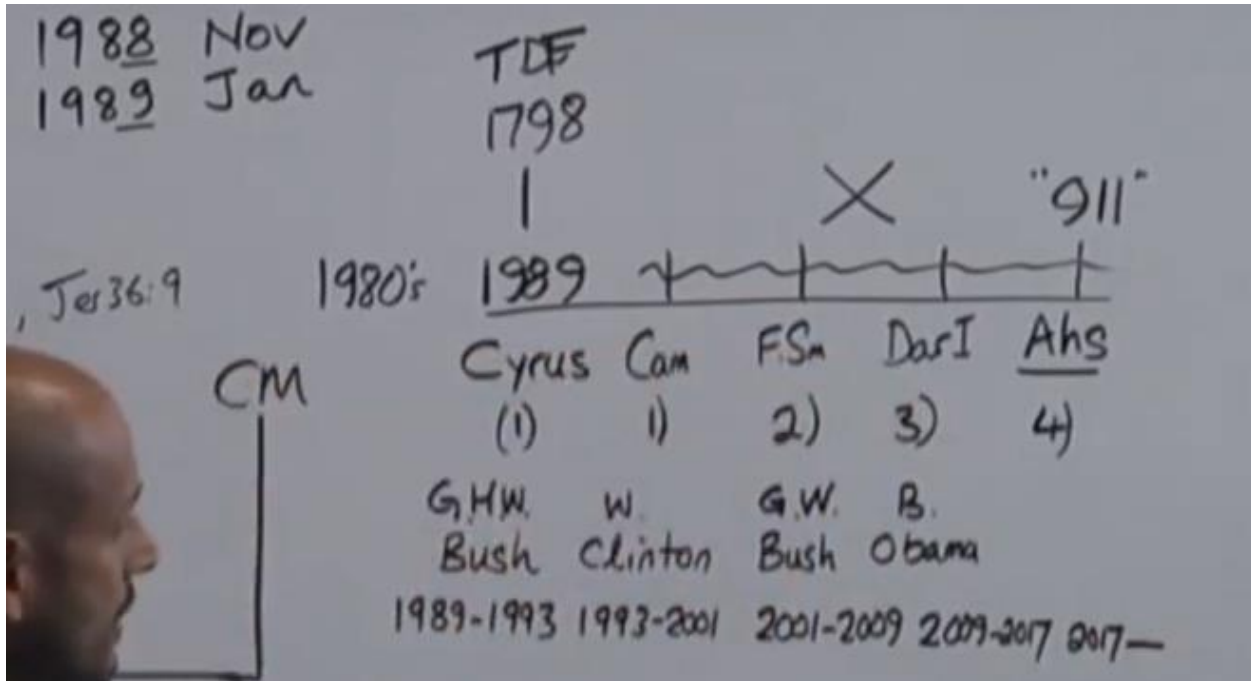 1988 Nov
1989 Jan
TOE
1798
"911"
, Jer 36:9
1980's 1989
CM
Cyrus Cam F.Sm Dar I Ahs
(1) 1) 2) 3) 4)
G.H.W. W. G.W. B.
Bush Clinton Bush Obama
1989-1993 1993-2001 2001-2009 2009-2017 2017—